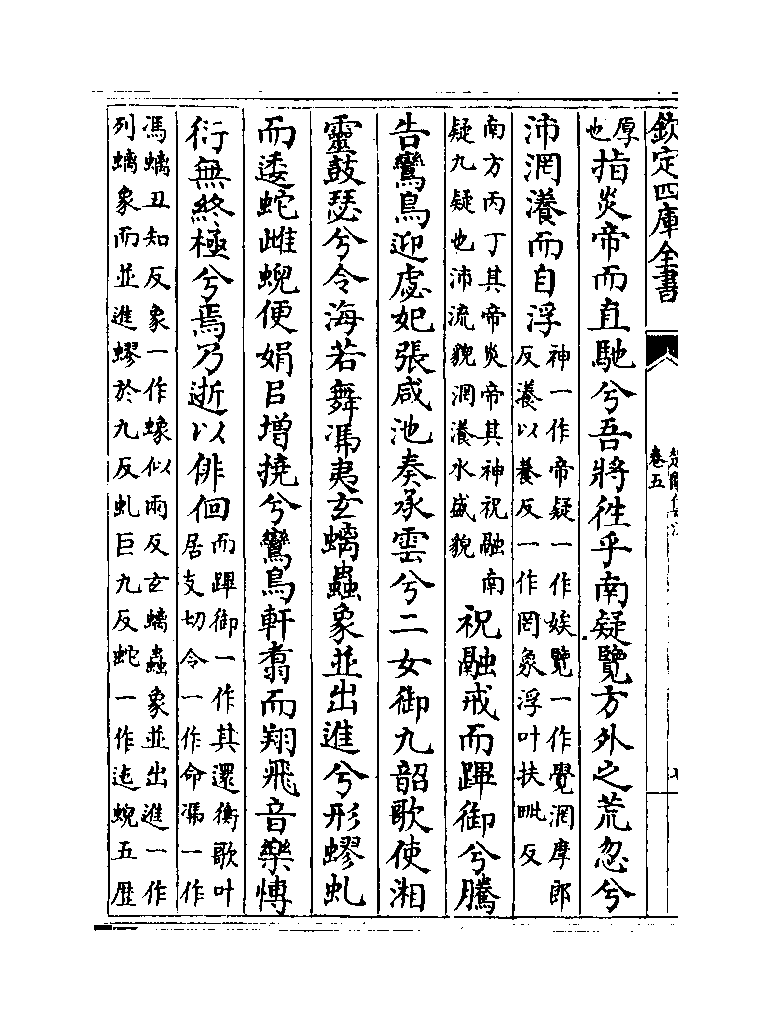 欽定四庫全書
卷五
厚也指炎帝而直馳兮吾將徃乎南疑覽方外之荒忽兮
沛㒺瀁而自浮神一作帝疑一作娭覽一作覺㒺摩郎反瀁以養反一作罔象浮叶扶毗反
南方丙丁其帝炎帝其神祝融南疑九疑也沛流貌㒺瀁水盛貌祝融戒而蹕御兮騰
告鸞鳥迎處妃張咸池奏承雲兮二女御九韶歌使湘
靈鼓瑟兮令海若舞馮夷玄螭蟲象並出進兮形蟉虬
而逶蛇雌蜺便娟㠯增撓兮鸞鳥軒翥而翔飛音樂愽
衍無終極兮焉乃逝以俳佪而蹕御一作其還衡歌叶居支切令一作命馮一作
馮螭丑知反象一作蟓似兩反玄螭蟲象並出進一作列螭象而並進蟉於九反虬巨九反蛇一作迱蜺五歴